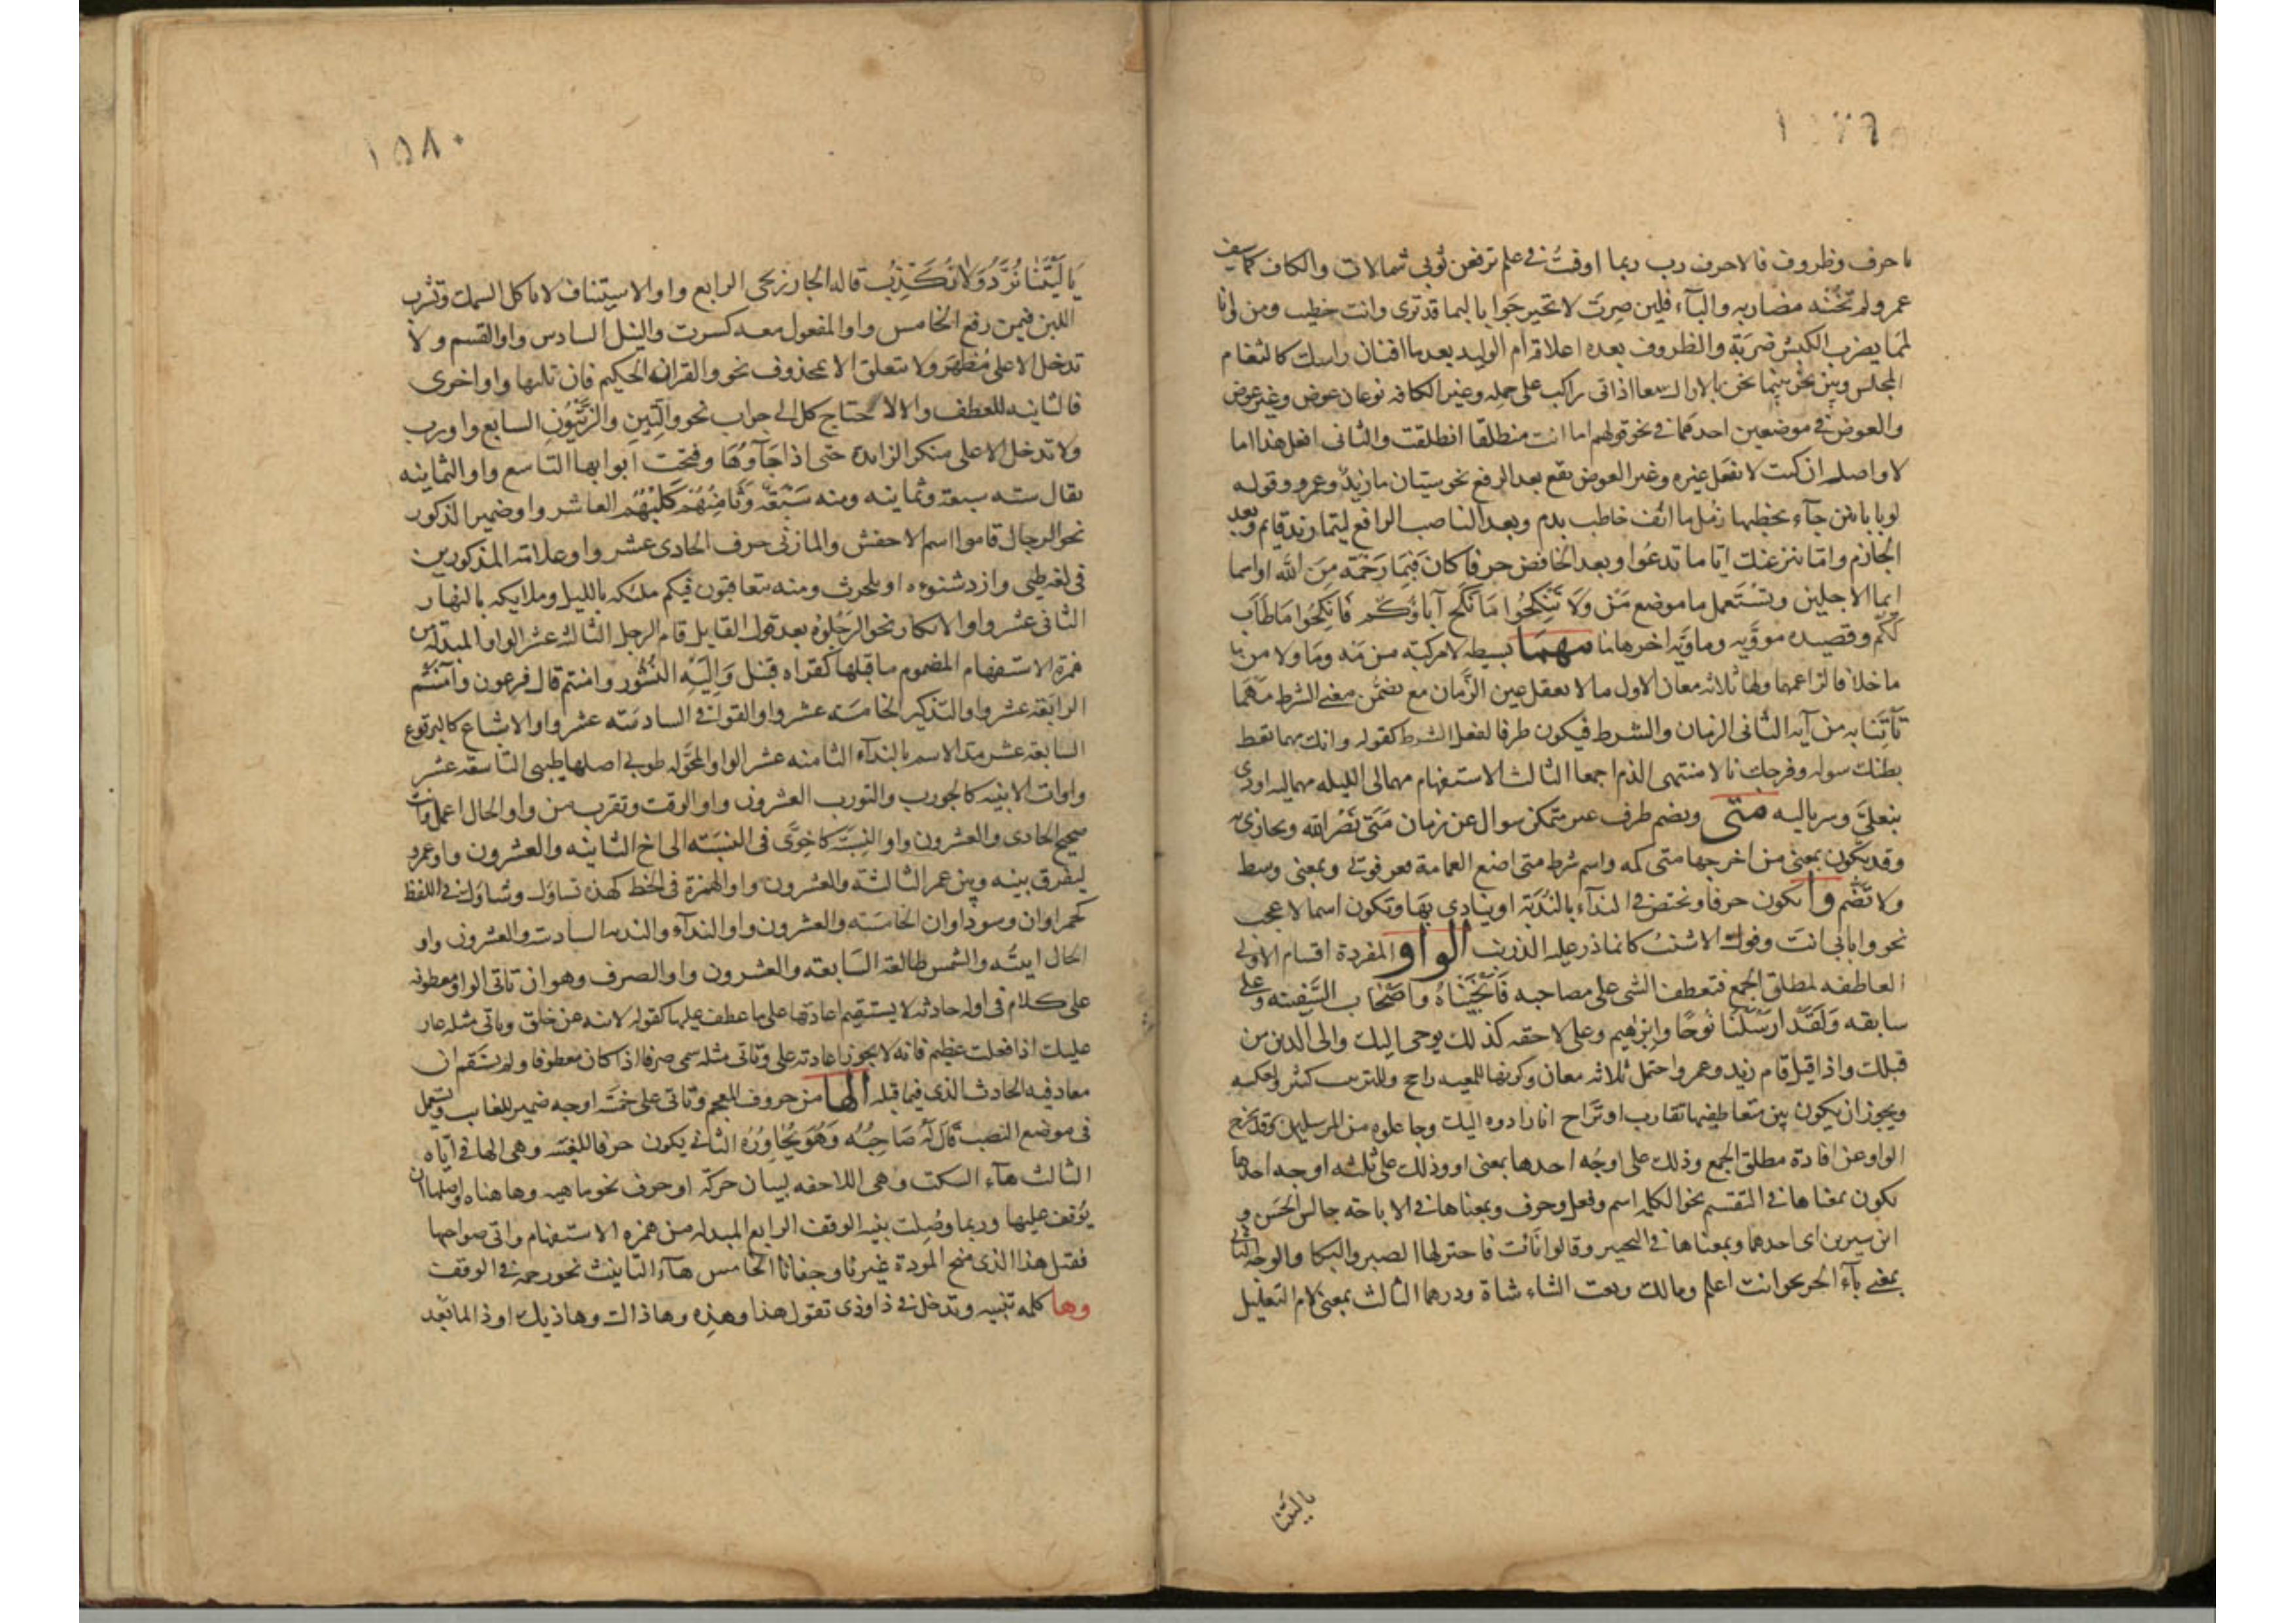 ما حرف وظروف فالاحرف رب ربما اوفيت في علم ترفعن ثوبي شمالات والكاف كما سيف
عمرو لم تخنه مضاربه والبآء فلين صرت لا تحير جوابا لبما قد ترى وانت خطيب ومن وانا
لمما يضرب الكبش ضربة والظروف بعده اعلاقة ام الوليد بعد ما افنان راسك كالثغام
المجلس وبين نحو بينما نحن بالاراك معا اذ اتى راكب على جمله وغير الكافه نوعان عوض وغير عوض
والعوض في موضعين احدهما في نحو قولهم اما انت منطلقا انطلقت والثاني افعل هذا اما
لا واصله ان كنت لا تفعل غيره وغير العوض يقع بعد الرفع نحو شتان ما زيد وعمرو وقوله
لو بابانين جآء يخطبها زمل ما انف خاطب بدم وبعد الناصب الرافع ليتما زيد قايم وبعد
الجازم واما ينزغنك ايا ما تدعوا وبعد الخافض حرفا كان فبما رحمة من الله او اسما
ايما الاجلين وتستعمل ما موضع من ولا تنكحوا ما نكح آباؤكم فانكحوا ما طاب
لكم وقصيده مووية وماوية اخرها ما مهما بسيطه لا مركبة من مه وما ولا من ما
ما خلافا لزاعمها ولها ثلاثه معان الاول ما لا يعقل غير الزمان مع تضمن معنى الشرط مهما
تأتنا به من آية الثاني الزمان والشرط فيكون ظرفا لفعل الشرط كقوله وانك مهما تعط
بطنك سوله وفرجك نالا منتهى الذم اجمعا الثالث الاستفهام مهما لى الليله مهما ليه اودى
بنعلي وسرباليه متى ويضم ظرف غير متمكن سوال عن زمان متى نصر الله ويجازى به
وقد يكون بمعنى من اخرجها متى كمه واسم شرط متى اضع العمامة تعرفوني وبمعنى وسط
ولا تضم وا يكون حرفا وتختص في الندآء بالندبة او ينادى بها وتكون اسما لاعجب
نحو وا بابي انت وفوك الاشنب كانما ذر عليه الزرنب الواو المفردة اقسام الاولى
العاطفه لمطلق الجمع فتعطف الشى على مصاحبه فأنجيناه وأصحاب السفينه وعلى
سابقه ولقد ارسلنا نوحا وابرهيم وعلى لاحقه كذلك يوحى اليك والى الذين من
قبلك واذا قيل قام زيد وعمرو احتمل ثلاثه معان وكونها للمعيه راجح وللترتيب كثير ولعكسه
ويجوز ان يكون بين متعاطفيها تقارب او تراخ انا رادوه اليك وجاعلوه من المرسلين وقد تخرج
الواو عن افادة مطلق الجمع وذلك على اوجه احدها بمعنى او وذلك على ثلثه اوجه احدها
تكون بمعناها في التقسيم نحو الكلمه اسم وفعل وحرف وبمعناها في الاباحة جالس الحسن و
ابن سيرين اى احدهما وبمعناها في التخيير وقالوا نأت فاختر لها الصبر والبكا والوجه الثانى
بمعنى بآء الجر نحو انت اعلم ومالك وبعت الشاء شاة ودرهما الثالث بمعنى لام التعليل
ياليتنا
١٥٨٠
ياليتنا نرد ولا نكذب قاله الخارزنجي الرابع واو الاستيناف لا تاكل السمك وتشرب
اللبن فيمن رفع الخامس واو المفعول معه كسرت والنيل السادس واو القسم ولا
تدخل الا على مظهر ولا تتعلق الا بمحذوف نحو والقرآن الحكيم فان تلتها واو اخرى
فالثانيه للعطف والا لاحتاج كل الى جواب نحو والتين والزيتون السابع واو رب
ولا تدخل الا على منكر الزايدة حتى اذا جآوها وفتحت ابوابها التاسع واو الثمانيه
يقال سته سبعة وثمانيه ومنه سبعة وثامنهم كلبهم العاشر واو ضمير الذكور
نحو الرجال قاموا اسم الاخفش والمازنى حرف الحادى عشر واو علامة المذكورين
فى لغه طيى وازد شنوءه او بلحرث ومنه يتعاقبون فيكم ملئكه بالليل وملايكه بالنهار
الثانى عشر واو الانكار نحو الرجلوه بعد قول القايل قام الرجل الثالث عشر الواو المبدله من
همزة الاستفهام المضموم ما قبلها كقراه قنبل واليه النشور وامنتم قال فرعون وآمنتم
الرابعة عشر واو التذكير الخامسه عشر واو القوافى السادسه عشر واو الاشباع كالبرقوع
السابعة عشر مد الاسم بالندآء الثامنه عشر الواو المحوله طوبى اصلها طيبى التاسعة عشر
واوات الابنيه كالجورب والتورب العشرون واو الوقت وتقرب من واو الحال اعمل وانت
صحيح الحادى والعشرون واو النسبه كاخوى فى النسبه الى اخ الثانيه والعشرون واو عمرو
ليفرق بينه وبين عمر الثالثة والعشرون واو الهمزة فى الخط كهذه نساؤك وشاؤك فى اللفظ
كحمراوان وسوداوان الخامسه والعشرون واو الندآء والندبه السادسه والعشرون واو
الحال اتيته والشمس طالعة السابعه والعشرون واو الصرف وهو ان تاتى الواو معطوفه
على كلام فى اوله حادثه لا يستقيم اعادتها على ما عطف عليها كقوله لا تنه عن خلق وتاتى مثله عار
عليك اذا فعلت عظيم فانه لا يجوز اعادته على وتاتى مثله سمى صرفا اذا كان معطوفا ولم يستقم ان
معاد فيه الحادث الذى فيما قبله الها من حروف المعجم وتاتى على خمسة اوجه ضمير للغايب وتستعمل
فى موضع النصب قال له صاحبه وهو يحاوره الثانى يكون حرفا للغيبه وهى الها فى اياه
الثالث هآء السكت وهى اللاحقه لبيان حركة او حرف نحو ما هيه وها هناه واصلها ان
يوقف عليها وربما وصلت بنيه الوقف الرابع المبدله من همزه الاستفهام واتى صواحبها
فقلن هذا الذى منح المودة غيرنا وجفانا الخامس هآء التانيث نحو رحمه فى الوقف
وها كلمه تنبيه وتدخل فى ذا وذى تقول هذا وهذه وهاذاك وهاذيك او ذا لما بعد